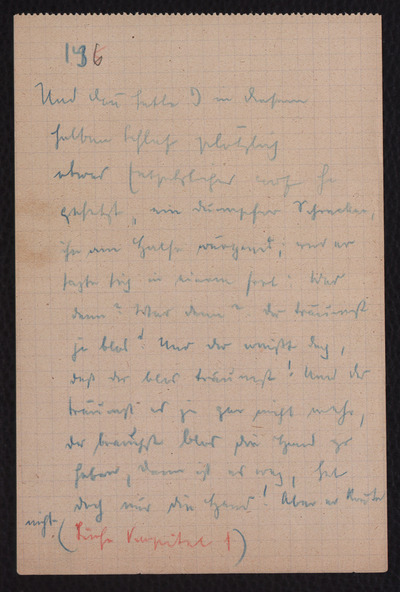 136
Und da hatte ) in diesem
halben Schlaf plötzlich
etwas Entsetzliches
gesetzt, ein dumpfer Schrecken,
ihn am Halse würgend, und er
sagte sich in einem fort: Was
denn? Was denn? Du träumst
ja blos! Und du weißt doch,
daß du blos träumst! Und du
träumst es ja gar nicht mehr,
du brauchst blos die Hand zu
heben, dann ist es weg, heb
doch nur die Hand! Aber er konnte
nicht. (Siehe Kapitel 1)